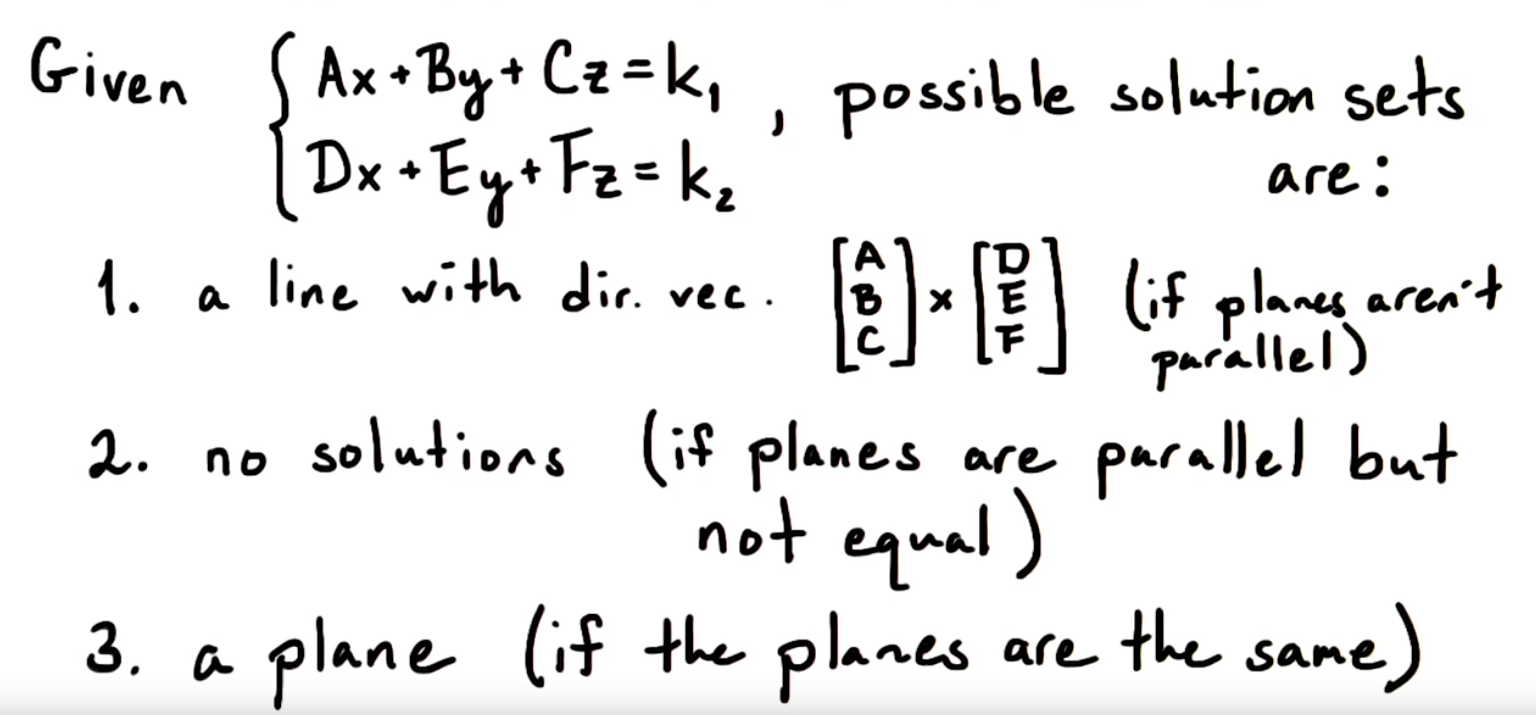 Given { Ax + By + Cz = k₁ , possible solution sets
Dx + Ey + Fz = k₂ are:
1. a line with dir. vec. [A B C] × [D E F] (if planes aren't
parallel)
2. no solutions (if planes are parallel but
not equal)
3. a plane (if the planes are the same)